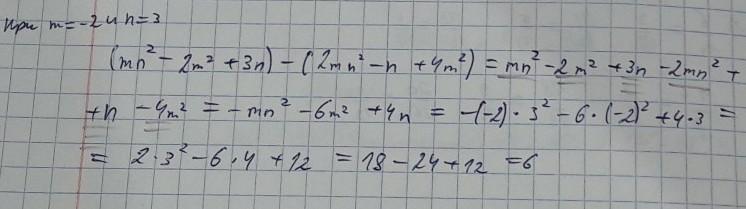 при m=-2 и n=3
(mn²-2m²+3n)-(2mn²-n+4m²)=mn²-2m²+3n-2mn²+
+n-4m²=-mn²-6m²+4n=-(-2)·3²-6·(-2)²+4·3=
=2·3²-6·4+12=18-24+12=6